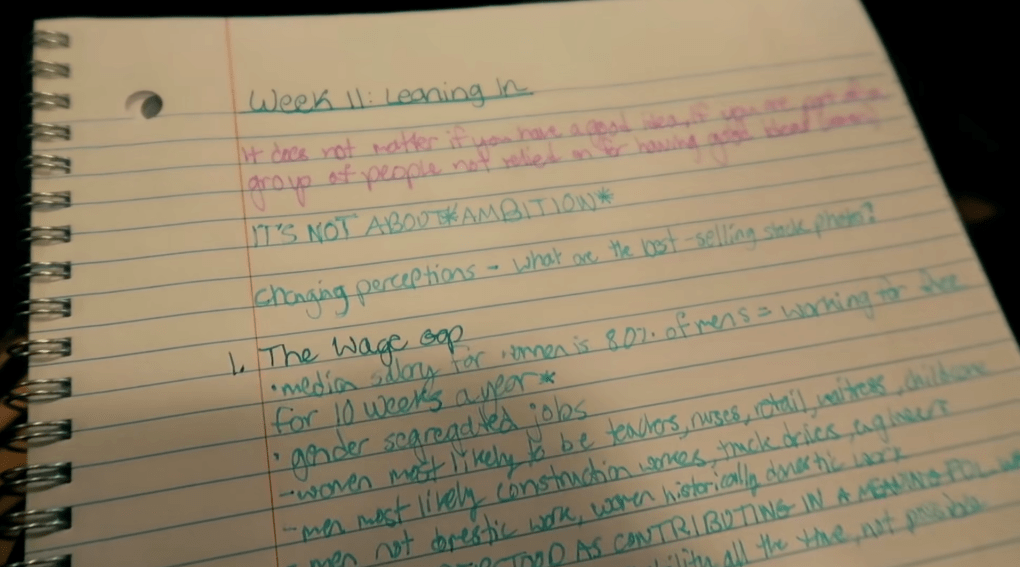 Week 11: Leaning In
It does not matter if you have a good idea, if you are part of a
group of people not relied on for having good ideas
IT'S NOT ABOUT *AMBITION*
Changing perceptions - what are the best-selling stock photo?
1. The Wage gap
· median salary for women is 80% of men's = working for free
for 10 weeks a year*
· gender segregated jobs
- women most likely to be teachers, nurses, retail, waitress, childcare
- men most likely construction workers, truck drivers, engineers
men not domestic work, women historically domestic work
AS CONTRIBUTING IN A MEANINGFUL
all the time, not possible